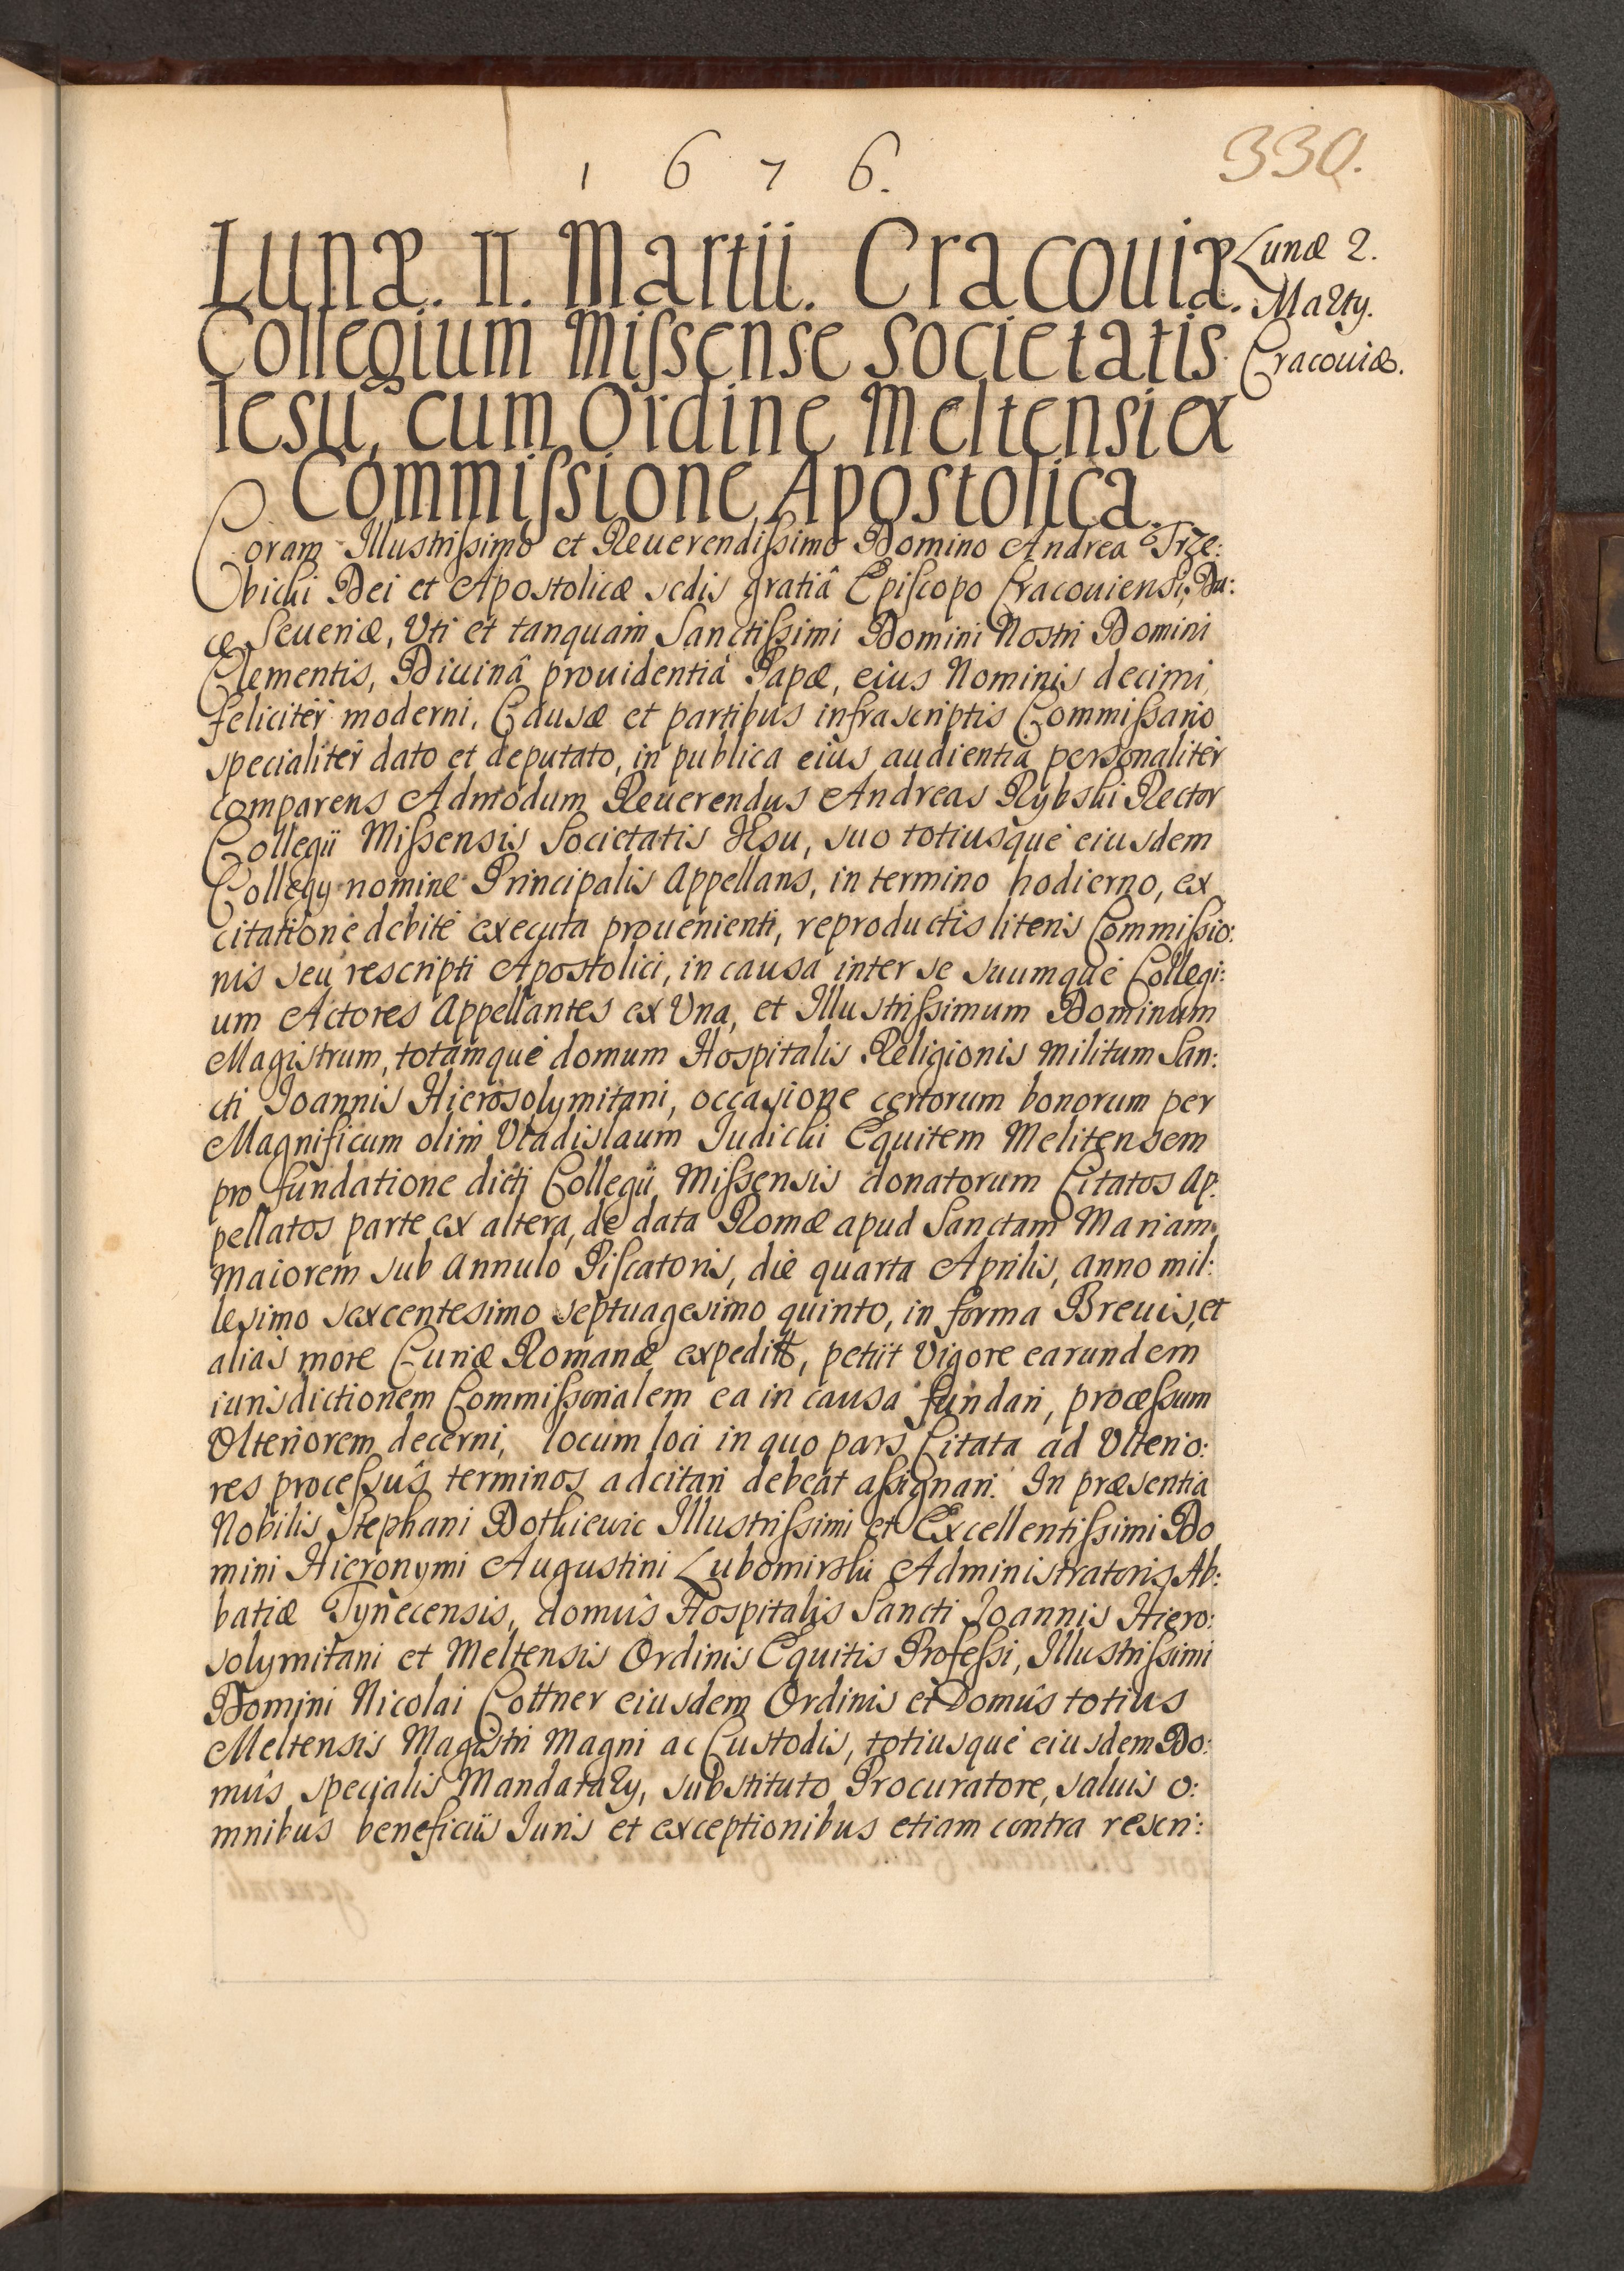 1676.
330.
Lunæ. II. Martii. Cracouiæ.
Collegium Missense Societatis
Iesu, cum Ordine Meltensi ex
Commissione Apostolica.
Lunæ 2.
Marty.
Cracouiæ.
Coram Illustrissimo et Reuerendissimo Domino Andrea Trze:
bicki Dei et Apostolicæ sedis gratiâ Episcopo Cracouiensi, Du:
ce Seueriæ, Uti et tanquam Sanctissimi Domini Nostri Domini
Clementis, Diuinâ prouidentiâ Papæ, eius Nominis decimi,
feliciter moderni, Causæ et partibus infrascriptis Commissario
specialiter dato et deputato, in publica eius audientia personaliter
comparens Admodum Reuerendus Andreas Rybski Rector
Collegii Missensis Societatis Iesu, suo totiusque eiusdem
Collegy nomine Principalis Appellans, in termino hodierno, ex
citatione debite executa prouenienti, reproductis literis Commissio:
nis seu rescripti Apostolici, in causa inter se suumque Collegi:
um Actores Appellantes ex Una, et Illustrissimum Dominum
Magistrum, totamque domum Hospitalis Religionis militum San:
cti Joannis Hierosolymitani, occasione certorum bonorum per
Magnificum olim Vladislaum Judicki Equitem Melitensem
pro fundatione dicti Collegii Missensis donatorum Citatos Ap:
pellatos parte ex altera, de data Romæ apud Sanctam Mariam
Maiorem sub Annulo Piscatoris, die quarta Aprilis, anno mil:
lesimo sexcentesimo septuagesimo quinto, in forma Breuis, et
alias more Curiæ Romanæ expeditt, petiit Vigore earundem
iurisdictionem Commissorialem ea in causa fundari, processum
Ulteriorem decerni, locum loci in quo pars Citata ad Ulterio:
res processûs terminos adcitari debeat assignari. In præsentia
Nobilis Stephani Dothiewic Illustrissimi et Excellentissimi Do
mini Hieronymi Augustini Lubomirski Administratoris Ab:
batiæ Tynecensis, domûs Hospitalis Sancti Joannis Hiero:
solymitani et Meltensis Ordinis Equitis Professi, Illustrissimi
Domini Nicolai Cottner eiusdem Ordinis et Domûs totius
Meltensis Magistri Magni ac Custodis, totiusque eiusdem Do:
mûs specialis Mandatary, substituto Procuratore, saluis o:
mnibus beneficiis Juris et exceptionibus etiam contra rescri: